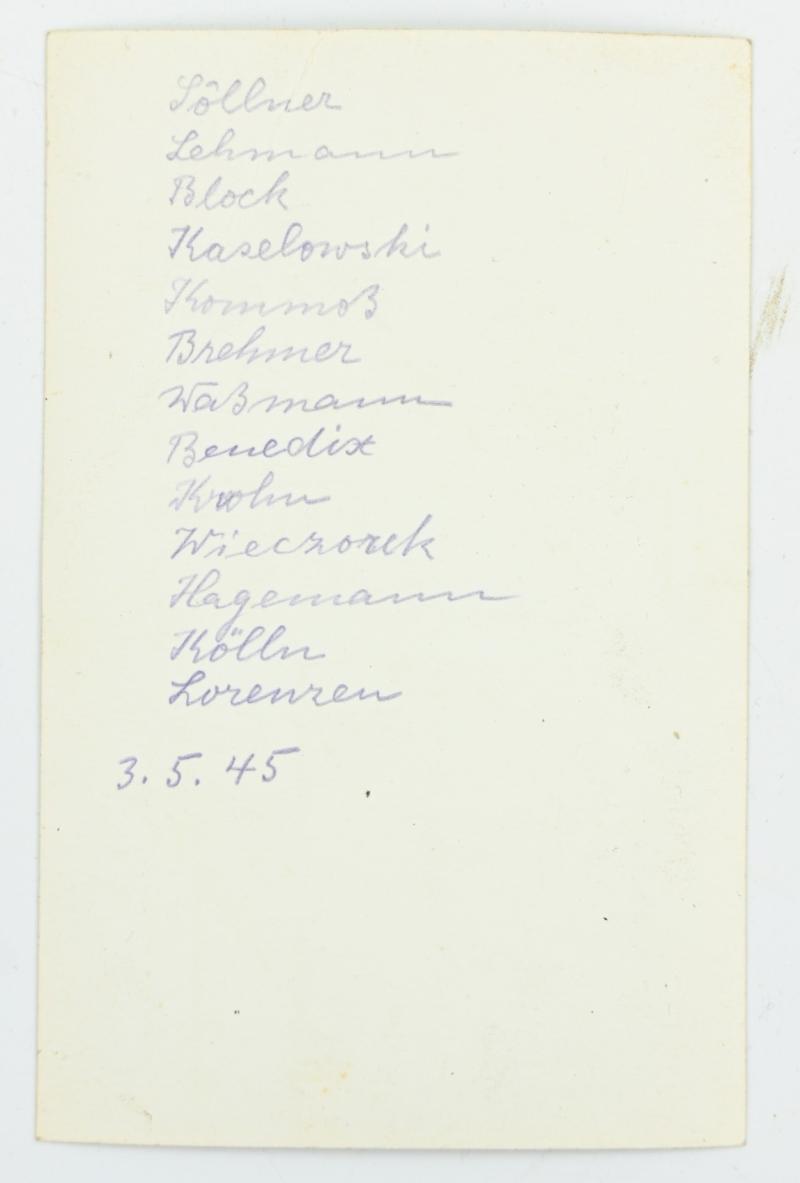 Söllner
Lehmann
Block
Kaselowski
Kommoß
Brehmer
Waßmann
Benedix
Krohn
Wieczorek
Hagemann
Kölln
Lorenzen
3. 5. 45